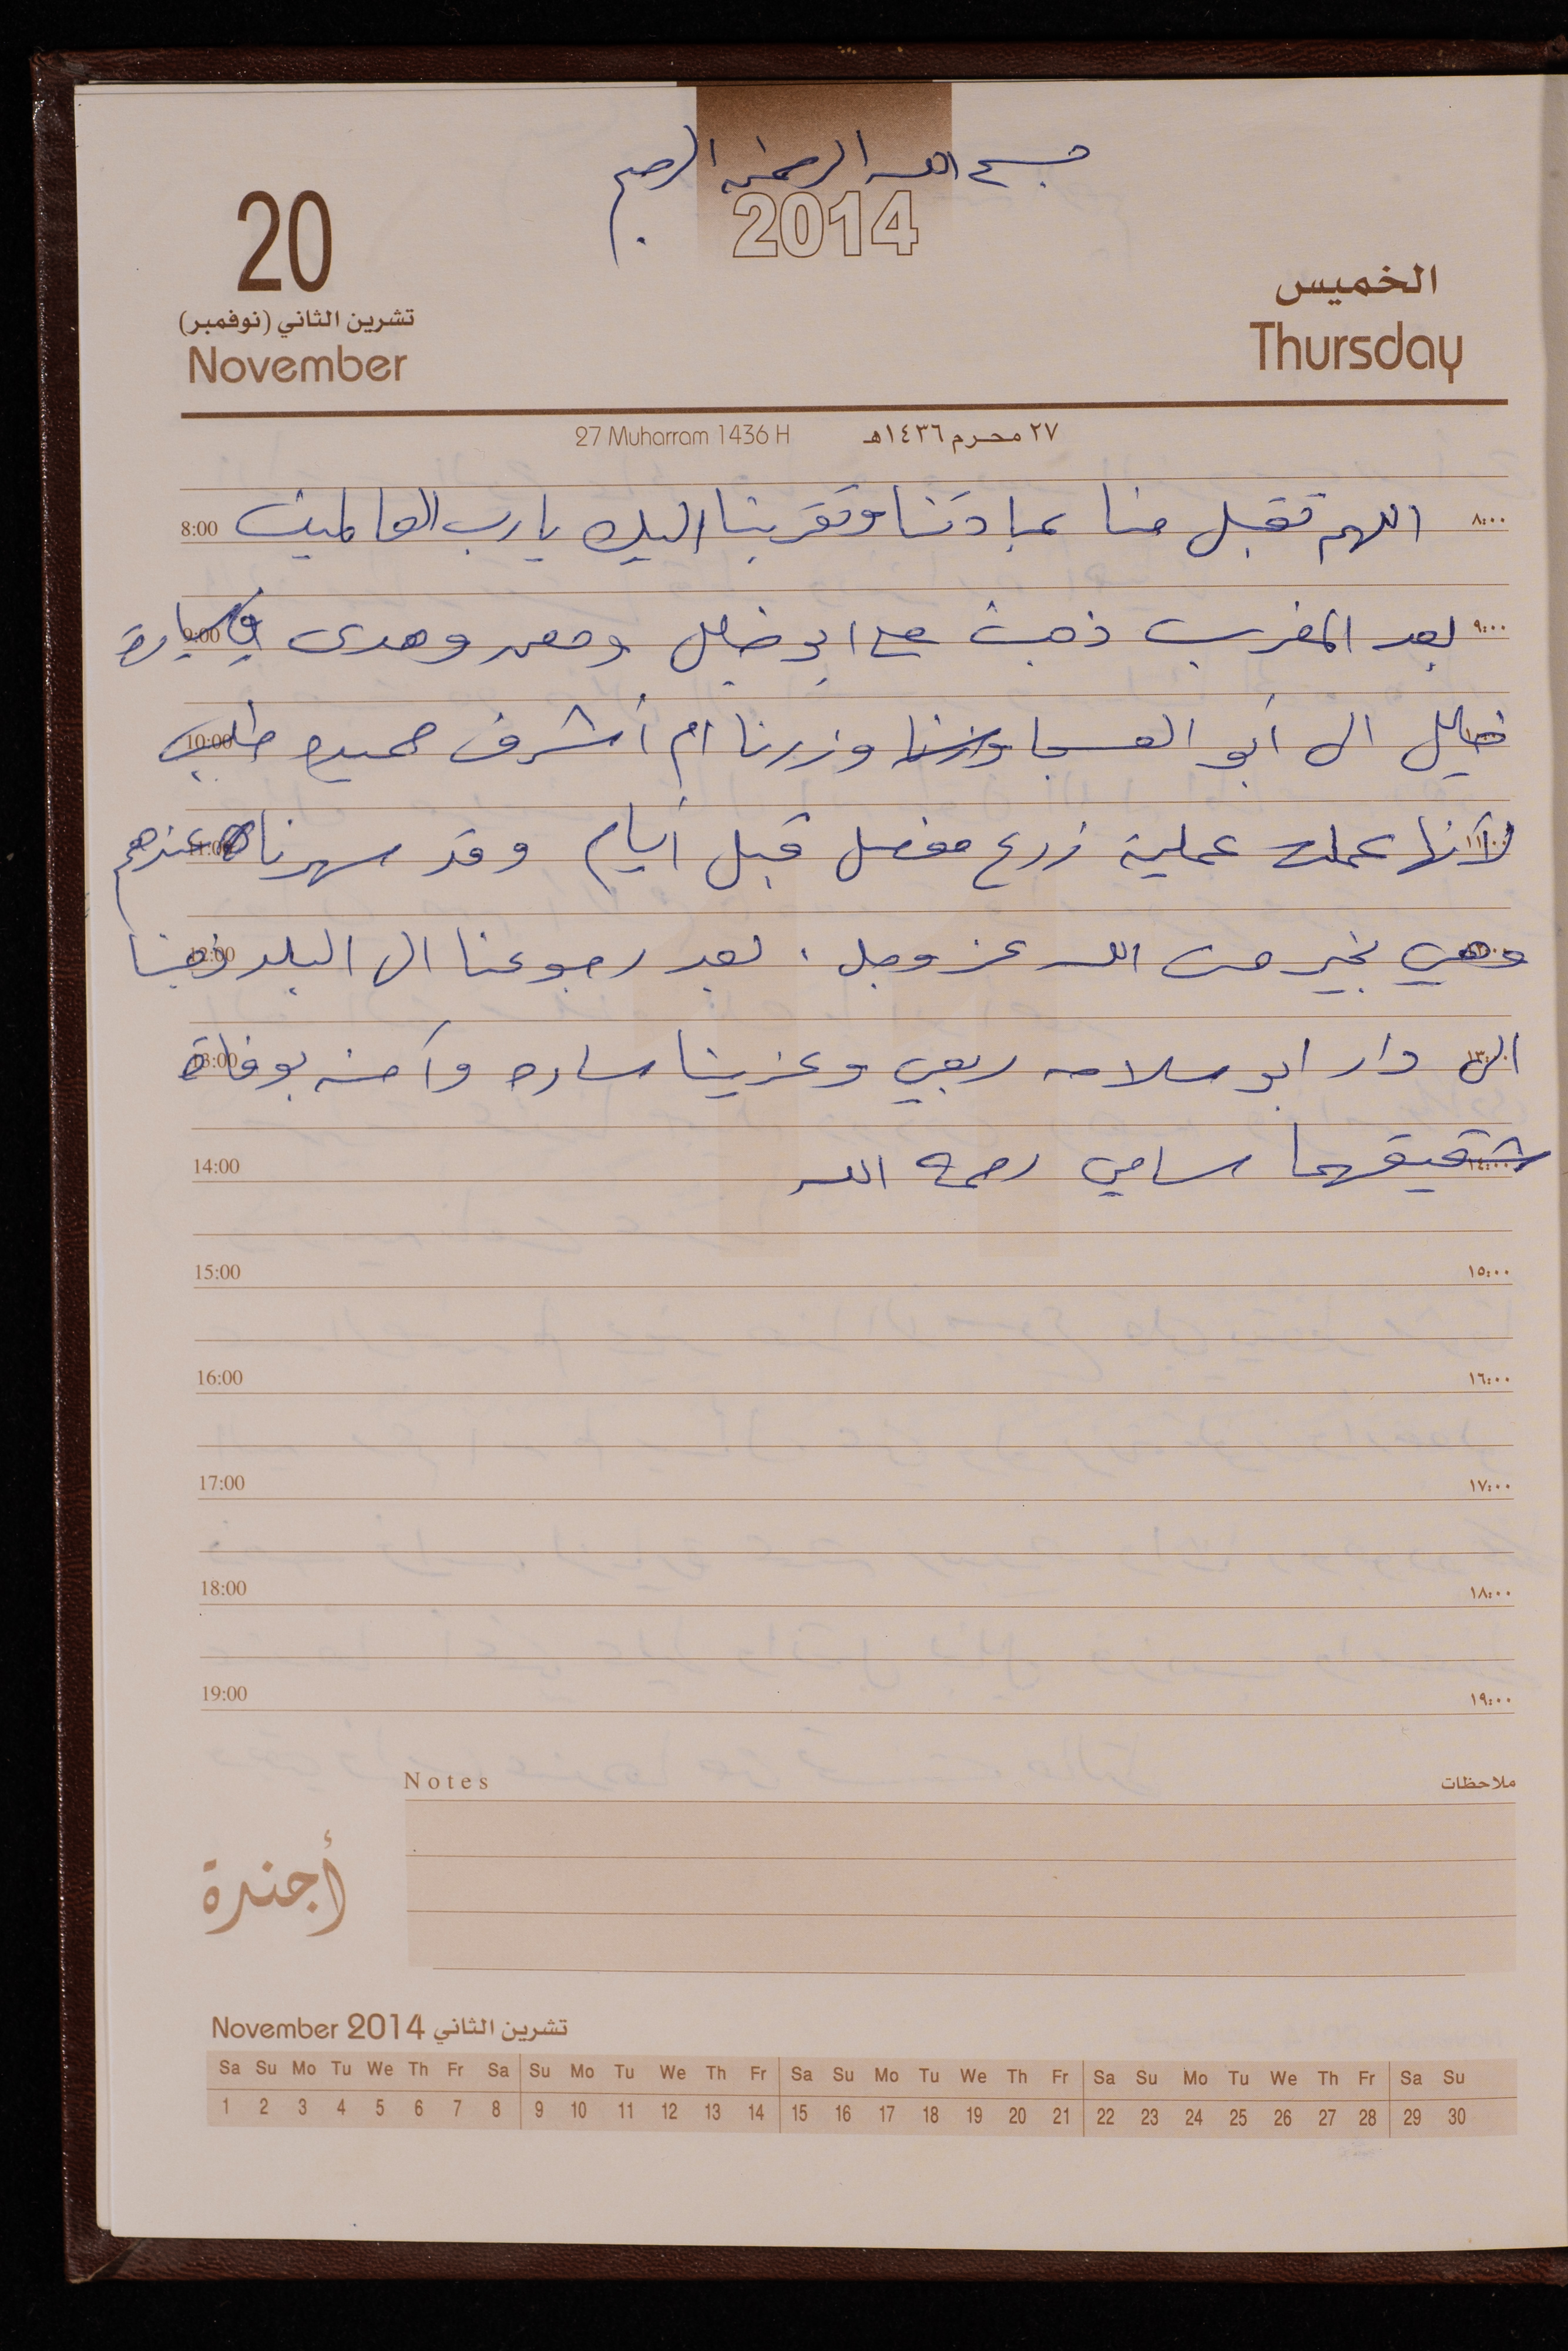 بسم الله الرحمن الرحيم
2014
20
تشرين الثاني (نوفمبر)
November
الخميس
Thursday
27 Muharram 1436 H ٢٧ محرم ١٤٣٦هـ
٨:٠٠ اللهم تقبل منا عبادتنا وتقربنا اليك يا رب العالمين 8:00
٩:٠٠ بعد المغرب ذهبت مع ابو خليل ومعمر وهدى في سيارة 9:00
خليل الى أبو العسجا وزرنا ام أشرف حميده طلب 10:00
١١:٠٠ لأنها عملت عملية زرع مفصل قبل أيام وقد سهرنا عندهم 11:00
وهي بخير من الله عز وجل . بعد رجوعنا الى البلد ذهبنا 12:00
١٣:٠٠ الى دار ابو سلامه ربعي وعزينا ساره وآمنه بوفاة 13:00
١٤:٠٠ شقيقهما سامي رحمه الله 14:00
١٥:٠٠ 15:00
١٦:٠٠ 16:00
١٧:٠٠ 17:00
١٨:٠٠ 18:00
١٩:٠٠ 19:00
Notes ملاحظات
أجندة
November 2014 تشرين الثاني
Sa Su Mo Tu We Th Fr Sa Su Mo Tu We Th Fr Sa Su Mo Tu We Th Fr Sa Su Mo Tu We Th Fr Sa Su
1 2 3 4 5 6 7 8 9 10 11 12 13 14 15 16 17 18 19 20 21 22 23 24 25 26 27 28 29 30